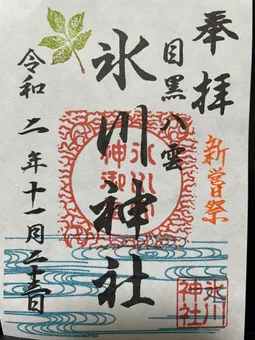 奉拝
新嘗祭
目黒八雲
氷川神社
令和二年十一月二十三日
氷川
神社